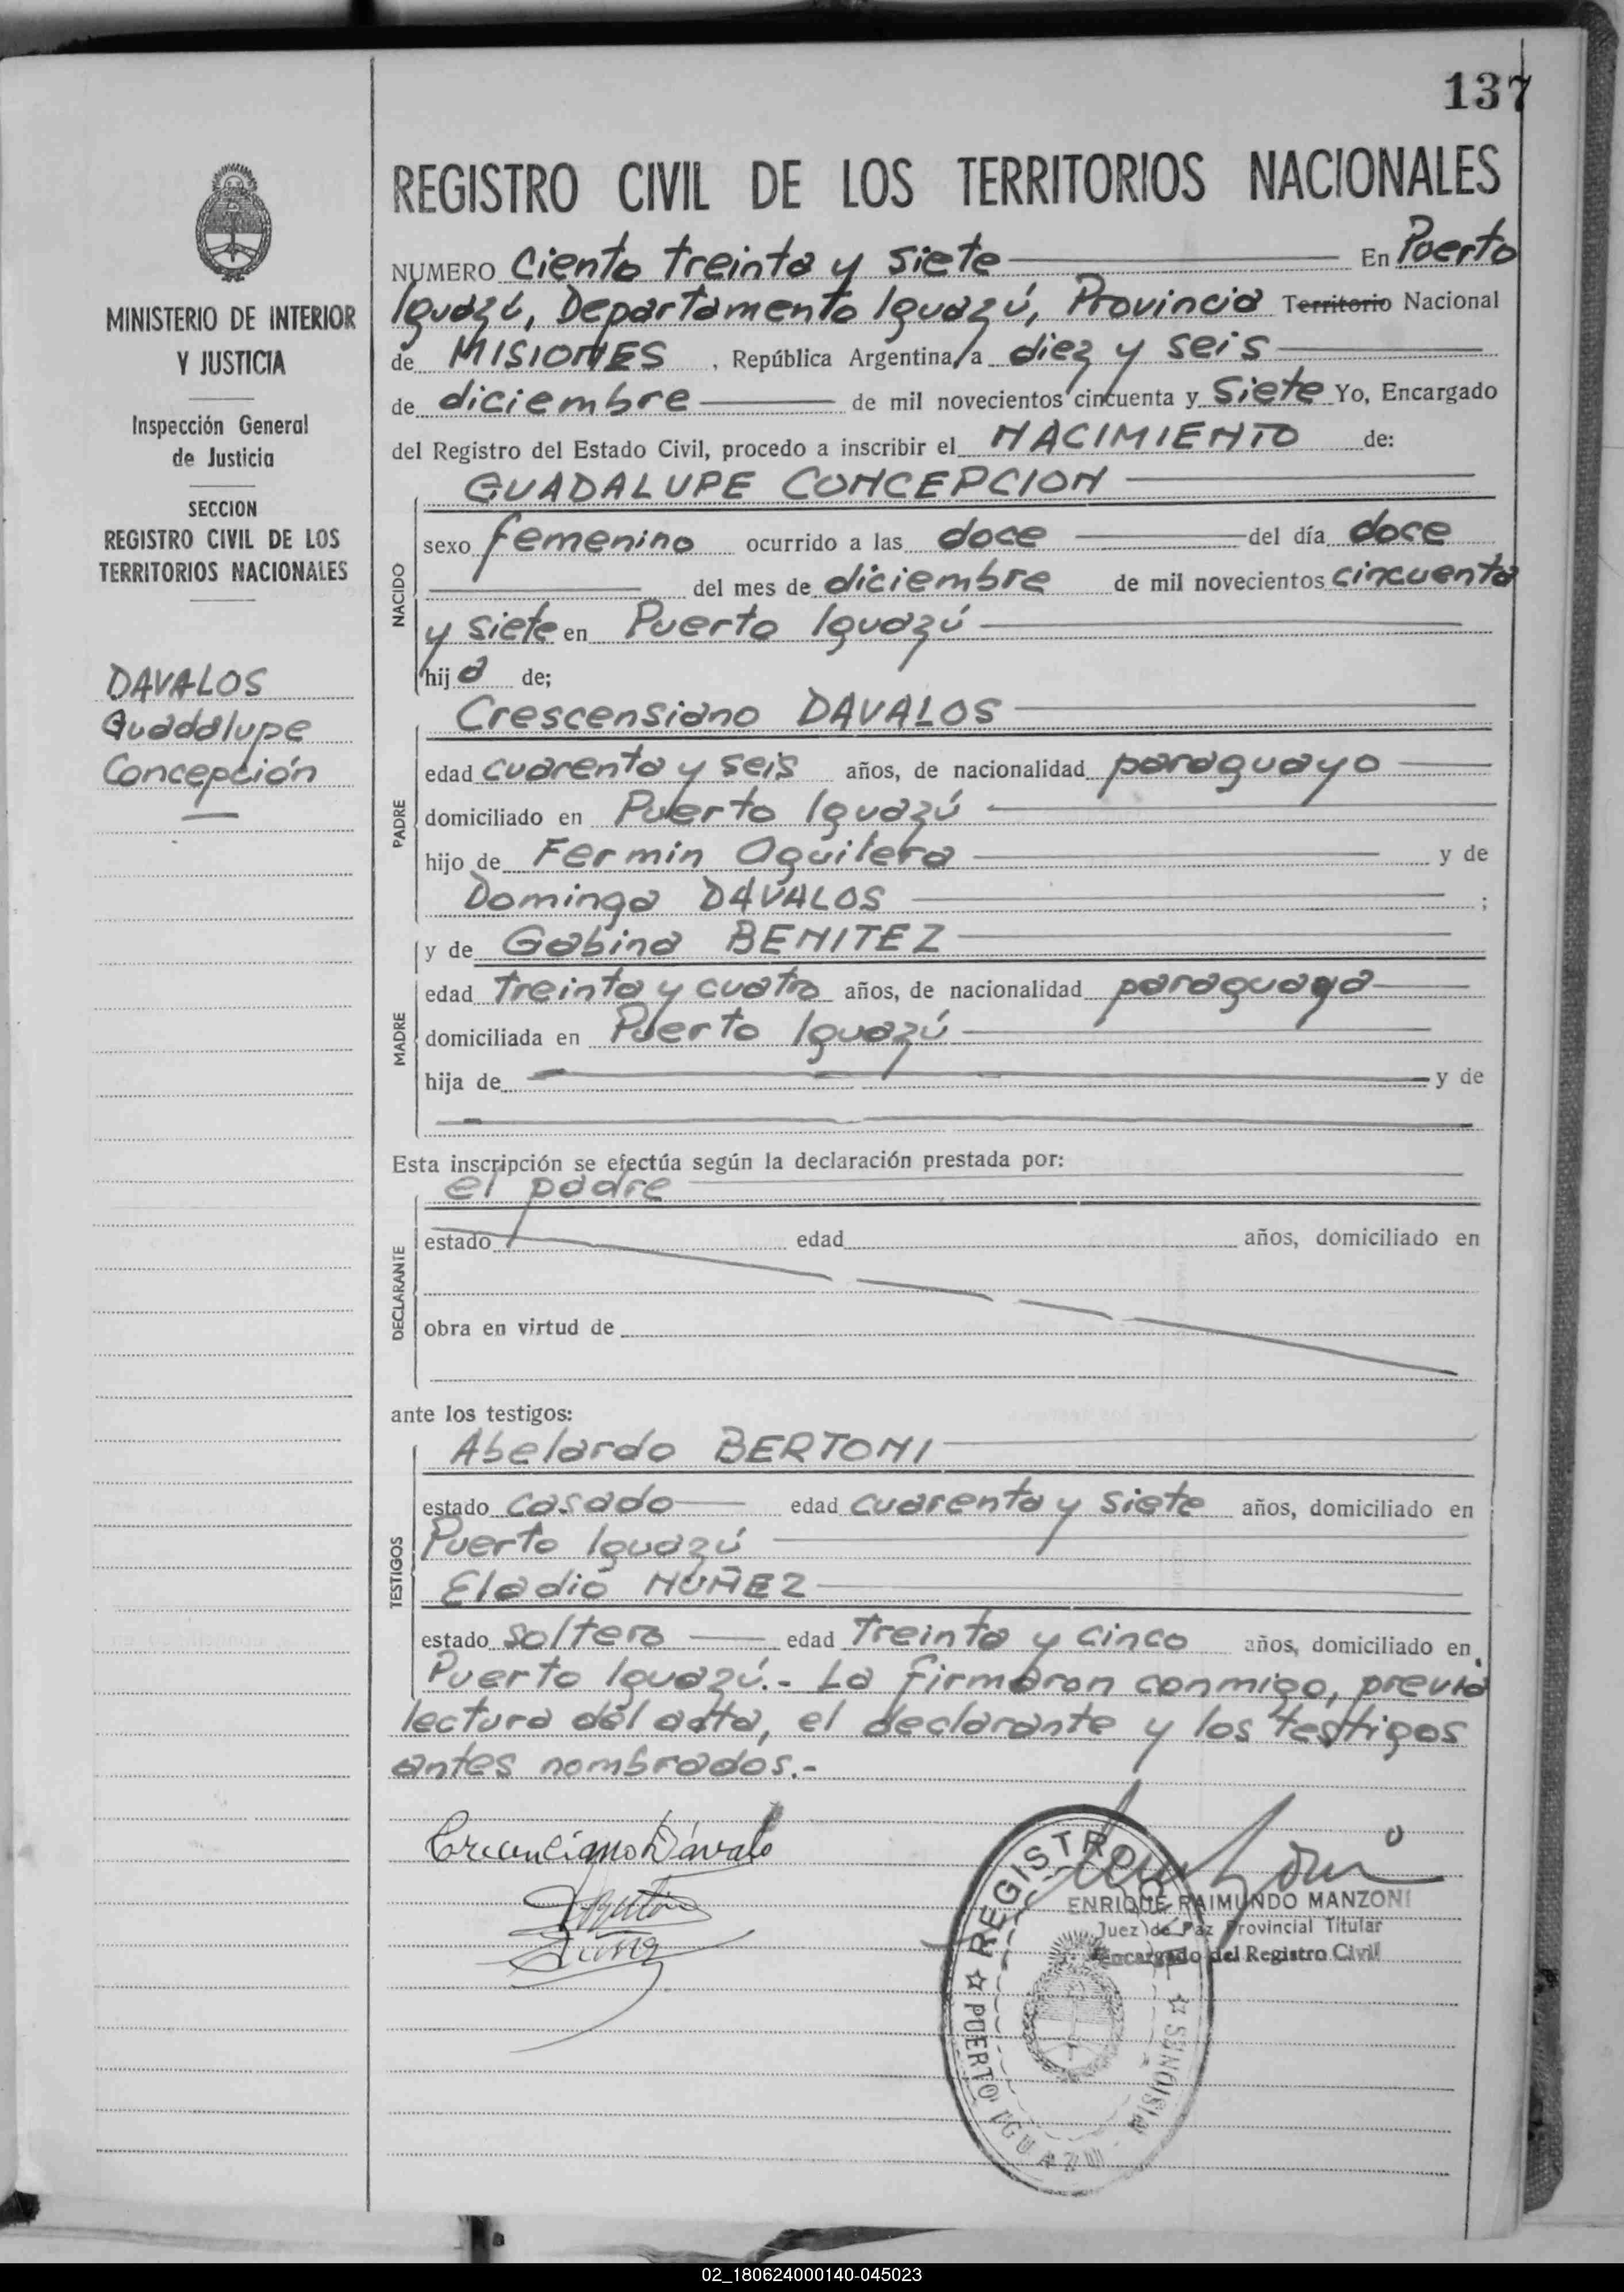 137
MINISTERIO DE INTERIOR
Y JUSTICIA
Inspección General
de Justicia
SECCION
REGISTRO CIVIL DE LOS
TERRITORIOS NACIONALES
DAVALOS
Guadalupe
Concepción
REGISTRO CIVIL DE LOS TERRITORIOS NACIONALES
NUMERO Ciento treinta y siete En Puerto
Iguazú, Departamento Iguazú, Provincia Territorio Nacional
de MISIONES , República Argentina, a diez y seis
de diciembre de mil novecientos cincuenta y siete Yo, Encargado
del Registro del Estado Civil, procedo a inscribir el NACIMIENTO de:
GUADALUPE CONCEPCION
NACIDO
sexo femenino ocurrido a las doce del día doce
del mes de diciembre de mil novecientos cincuenta
y siete en Puerto Iguazú
hija de;
Crescensiano DAVALOS
PADRE
edad cuarenta y seis años, de nacionalidad paraguayo
domiciliado en Puerto Iguazú
hijo de Fermin Aguilera y de
Dominga DAVALOS ;
y de Gabina BENITEZ
MADRE
edad treinta y cuatro años, de nacionalidad paraguaya
domiciliada en Puerto Iguazú
hija de y de
Esta inscripción se efectúa según la declaración prestada por:
el padre
DECLARANTE
estado edad años, domiciliado en
obra en virtud de
ante los testigos:
Abelardo BERTONI
TESTIGOS
estado casado edad cuarenta y siete años, domiciliado en
Puerto Iguazú
Eladio NUÑEZ
estado soltero edad treinta y cinco años, domiciliado en
Puerto Iguazú.- La firmaron conmigo, previa
lectura del acta, el declarante y los testigos
antes nombrados.-
ENRIQUE RAIMUNDO MANZONI
Juez de Paz Provincial Titular
Encargado del Registro Civil
REGISTRO
PUERTO IGUAZU - MISIONES
02_180624000140-045023